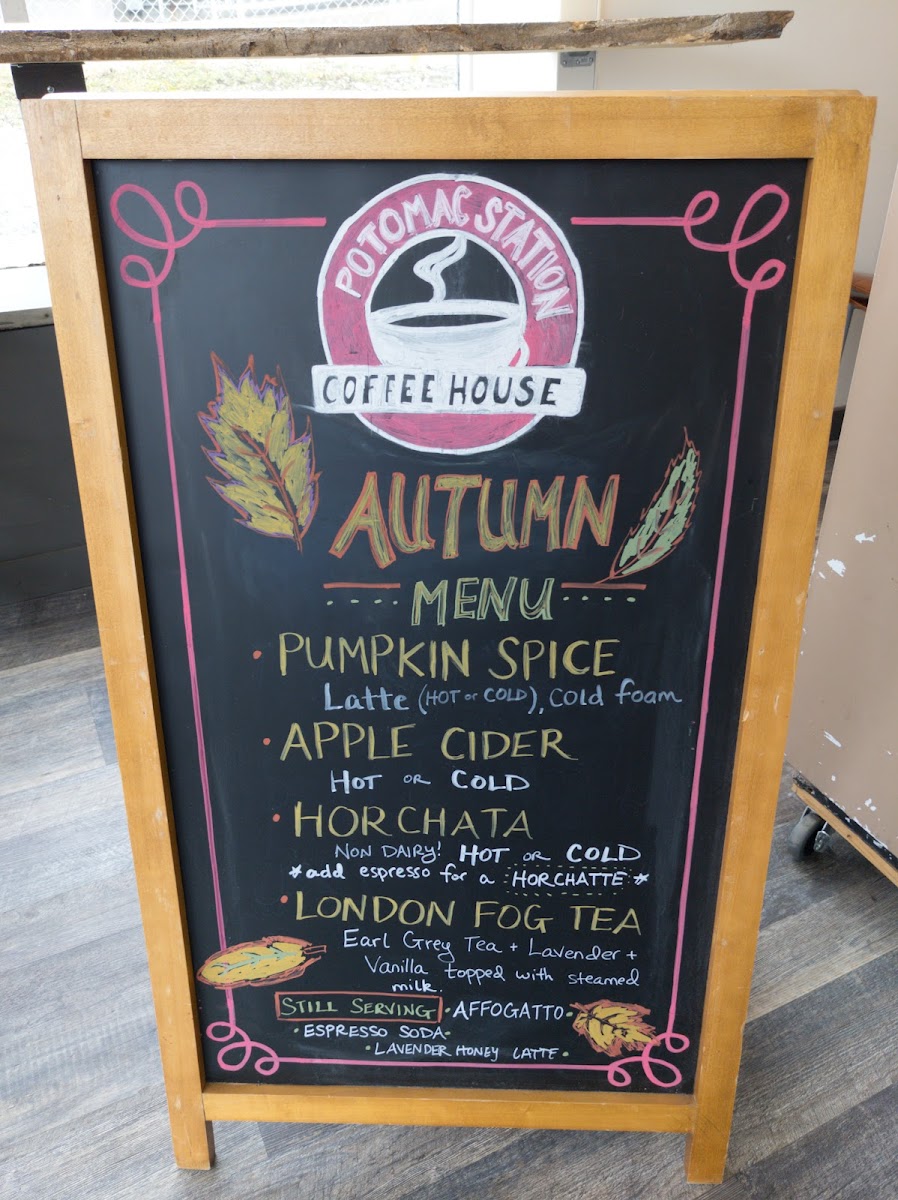 POTOMAC STATION
COFFEE HOUSE
AUTUMN
MENU
• PUMPKIN SPICE
Latte (HOT or COLD), cold foam
• APPLE CIDER
HOT OR COLD
• HORCHATA
NON DAIRY! HOT OR COLD
*add espresso for a HORCHATTE*
• LONDON FOG TEA
Earl Grey Tea + Lavender +
Vanilla topped with steamed
milk.
STILL SERVING • AFFOGATTO •
• ESPRESSO SODA •
• LAVENDER HONEY LATTE •